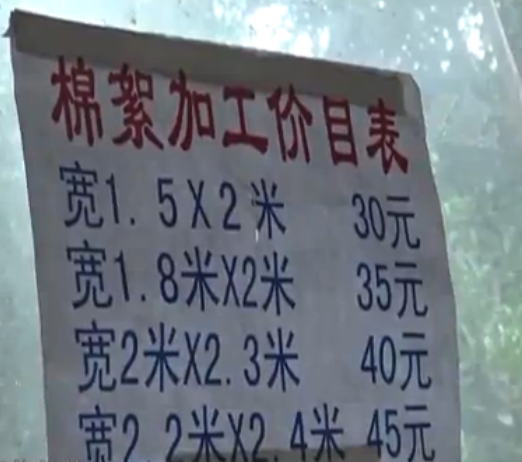 棉絮加工价目表
宽1.5X2米 30元
宽1.8米X2米 35元
宽2米X2.3米 40元
宽2.2米X2.4米 45元